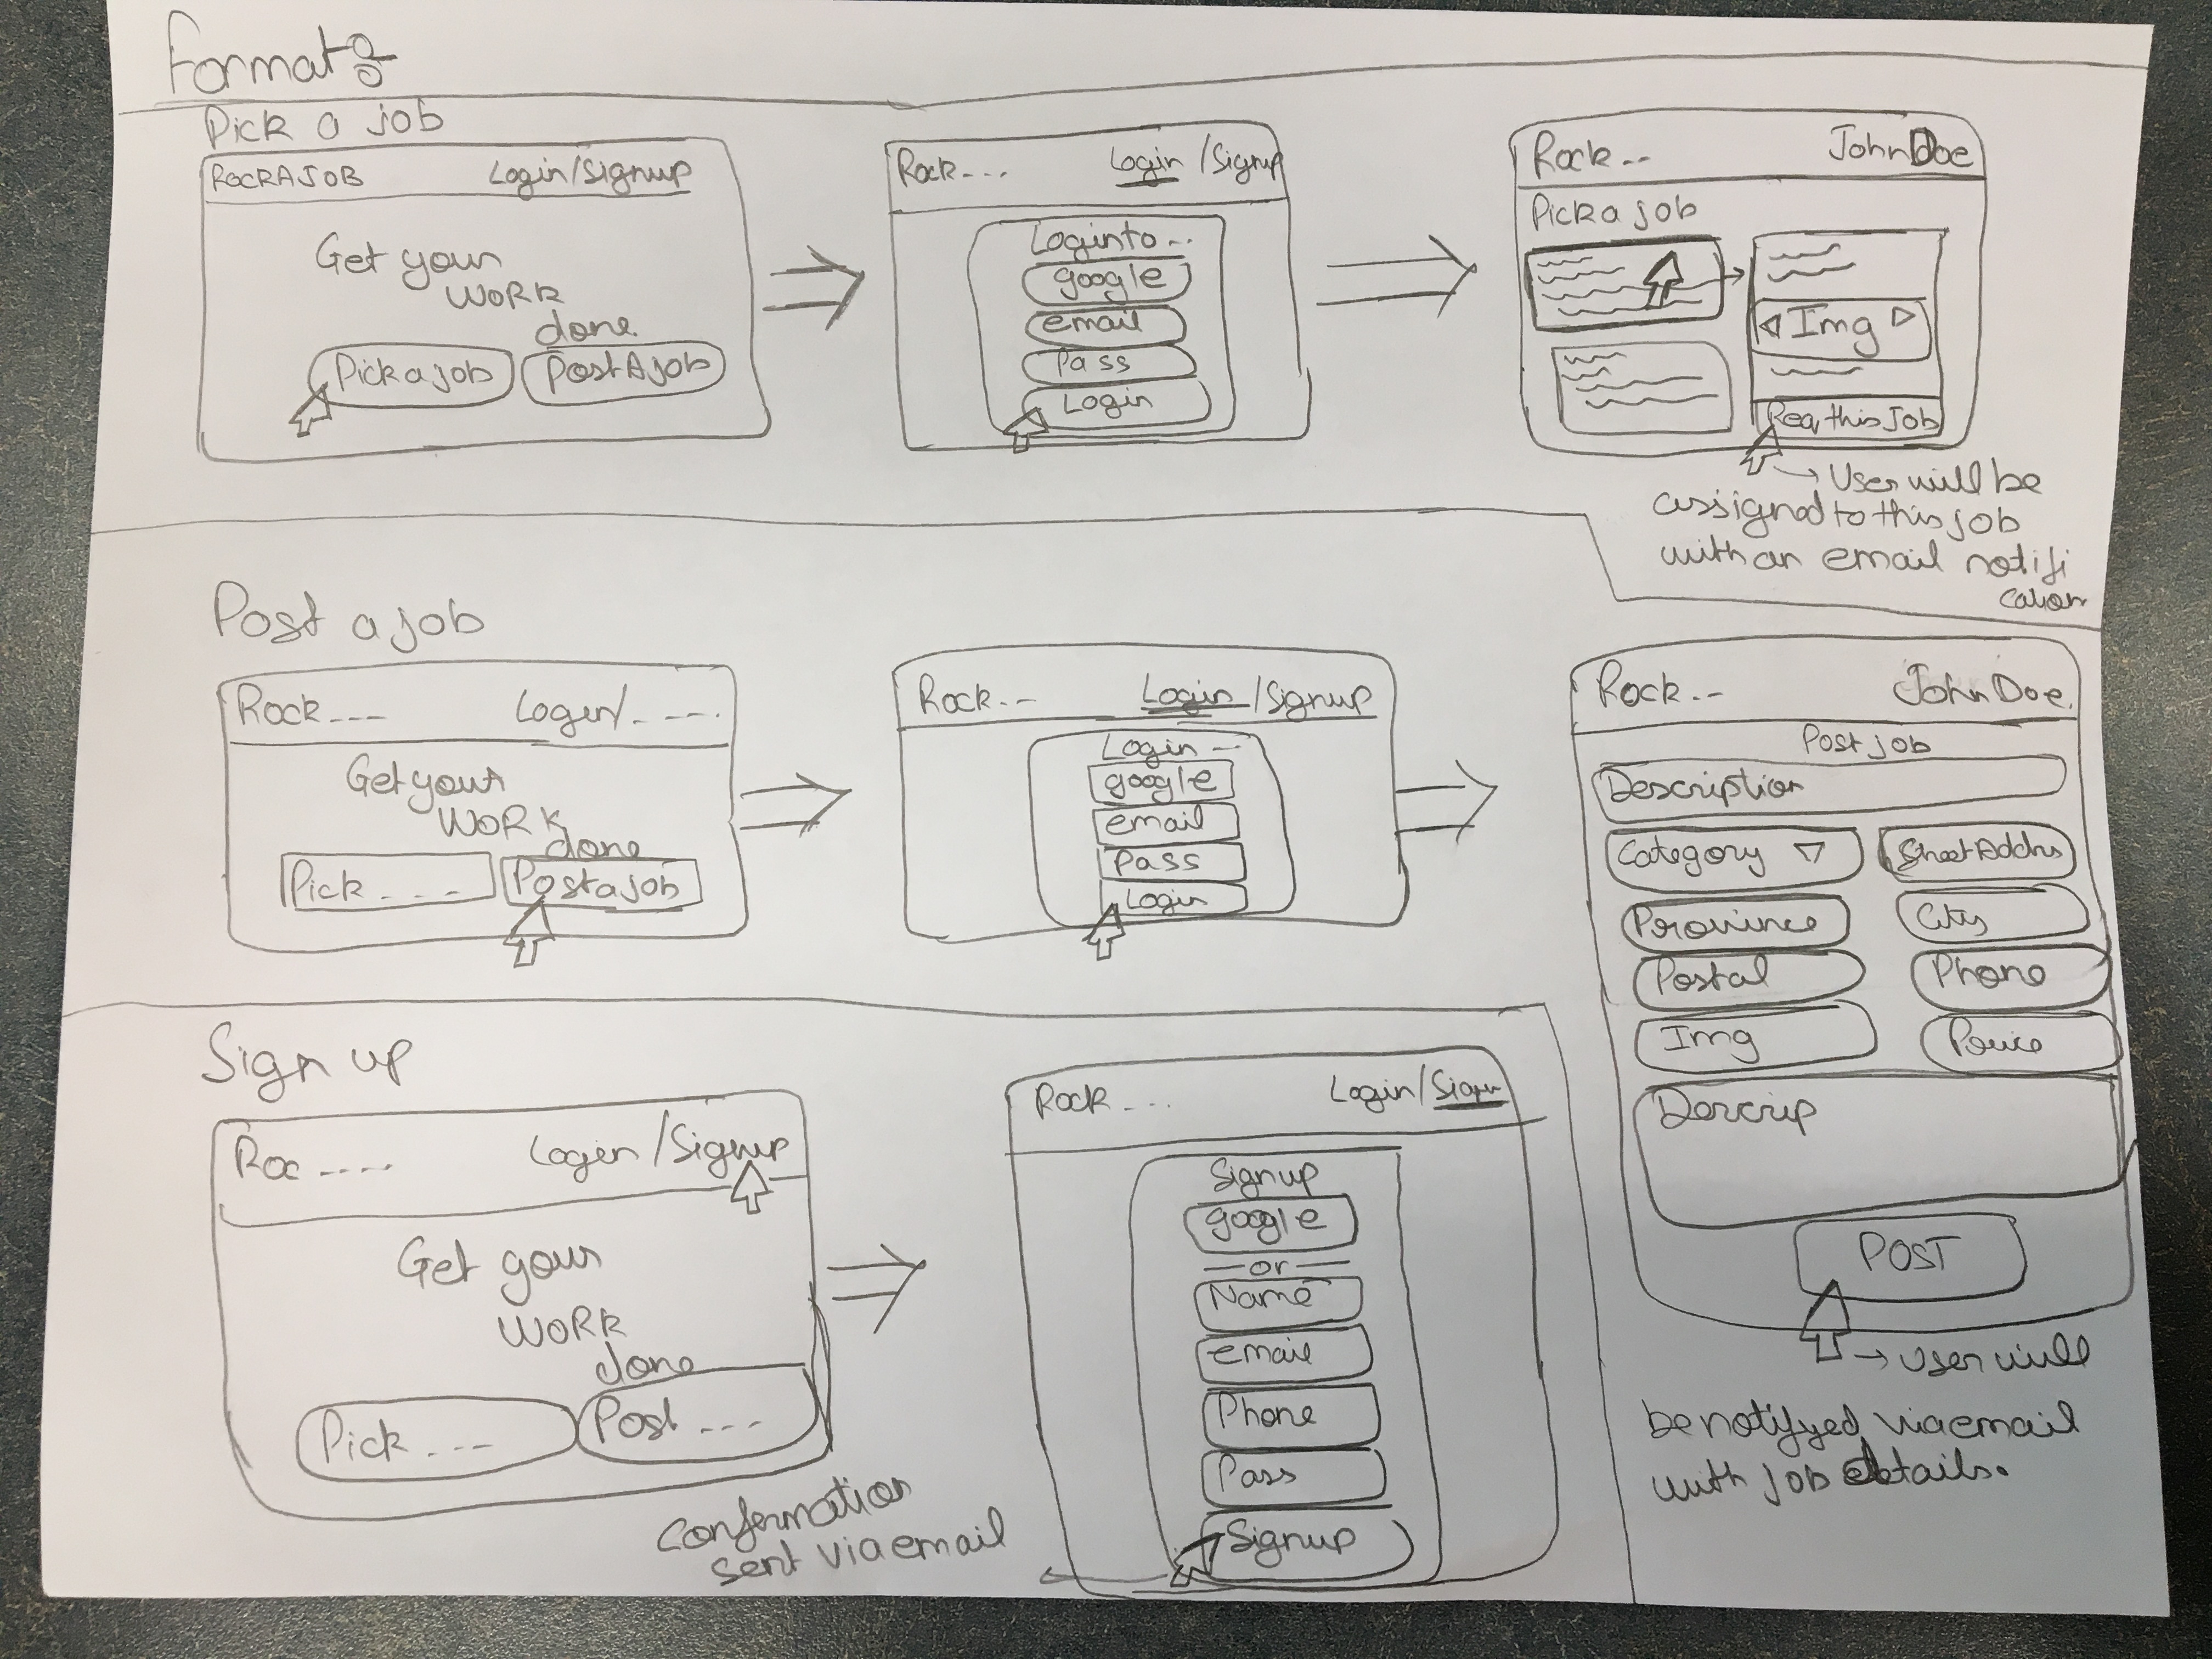 Format:
Pick a job
ROCKAJOB Login/Signup
Get your
WORK
done
Pick a job Post A job
Rock... Login /Signup
Login to ...
google
email
Pass
Login
Rock -- John Doe
Pick a job
◁ Img ▷
Req this Job
→ User will be
assigned to this job
with an email notifi
cation
Post a job
Rock --- Login/- ---.
Get your
WORK
done
Pick --- Post a job
Rock -- Login /Signup
Login --
google
email
Pass
Login
Rock -- John Doe.
Post job
Description
Category ▽ Street Addrs
Province City
Postal Phone
Img Price
Descrip
POST
→ User will
be notifyed via email
with job details.
Sign up
Roc ---- Login /Signup
Get your
WORK
done
Pick --- Post ---
Confermation
sent via email
Rock --- Login/Signup
Signup
google
— or —
Name
email
Phone
Pass
Signup